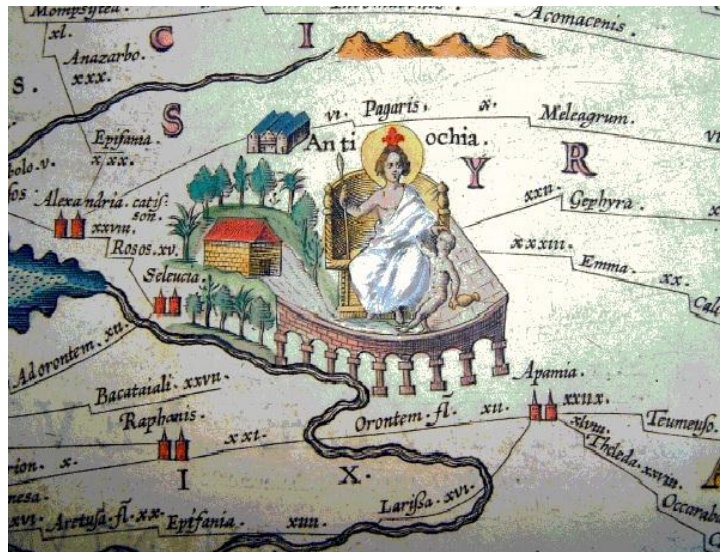 Mompsytea
Acomacenis.
xl.
C I
Anazarbo.
xxx.
S.
S
vi. Pagaris, x. Meleagrum.
Epifania.
x, xx.
Anti ochia.
Y R
bolo v.
Alexandria. catis=
son.
xxviii.
Rosos. xv.
xxii. Gephyra.
xxxiii. Emma. xx.
Seleucia,
Adorontem. xii.
Bacataiali. xxvii.
Apamia.
Raphanis.
xxi. Orontem. fl. xii. xxiix. Teumeuso.
xlviii. Theleda. xxviii.
Occaraba
I X.
x.
Larissa. xvi.
xvi. Aretusa. fl. xx. Epifania. xiiii.